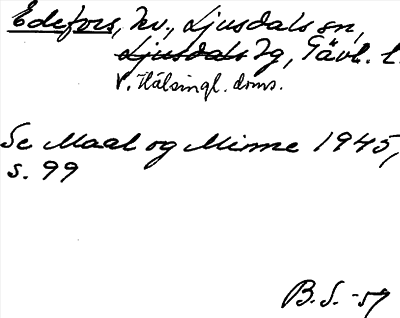 Edefors, kv., Ljusdals sn,
Ljusdals tg, Gävl. l.
V. Hälsingl. doms.
Se Maal og Minne 1945,
s. 99
B. S. -57